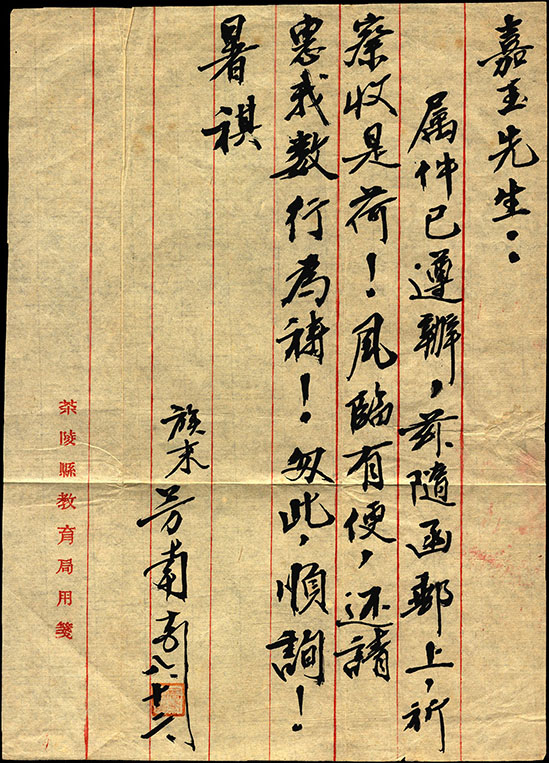 嘉玉先生：
属件已遵辦，茲隨函郵上，祈
察收是荷！風臨有便，还請
惠我數行為禱！匆此，順詢！
暑祺
族末 芳甫 八.十六
茶陵縣教育局用箋